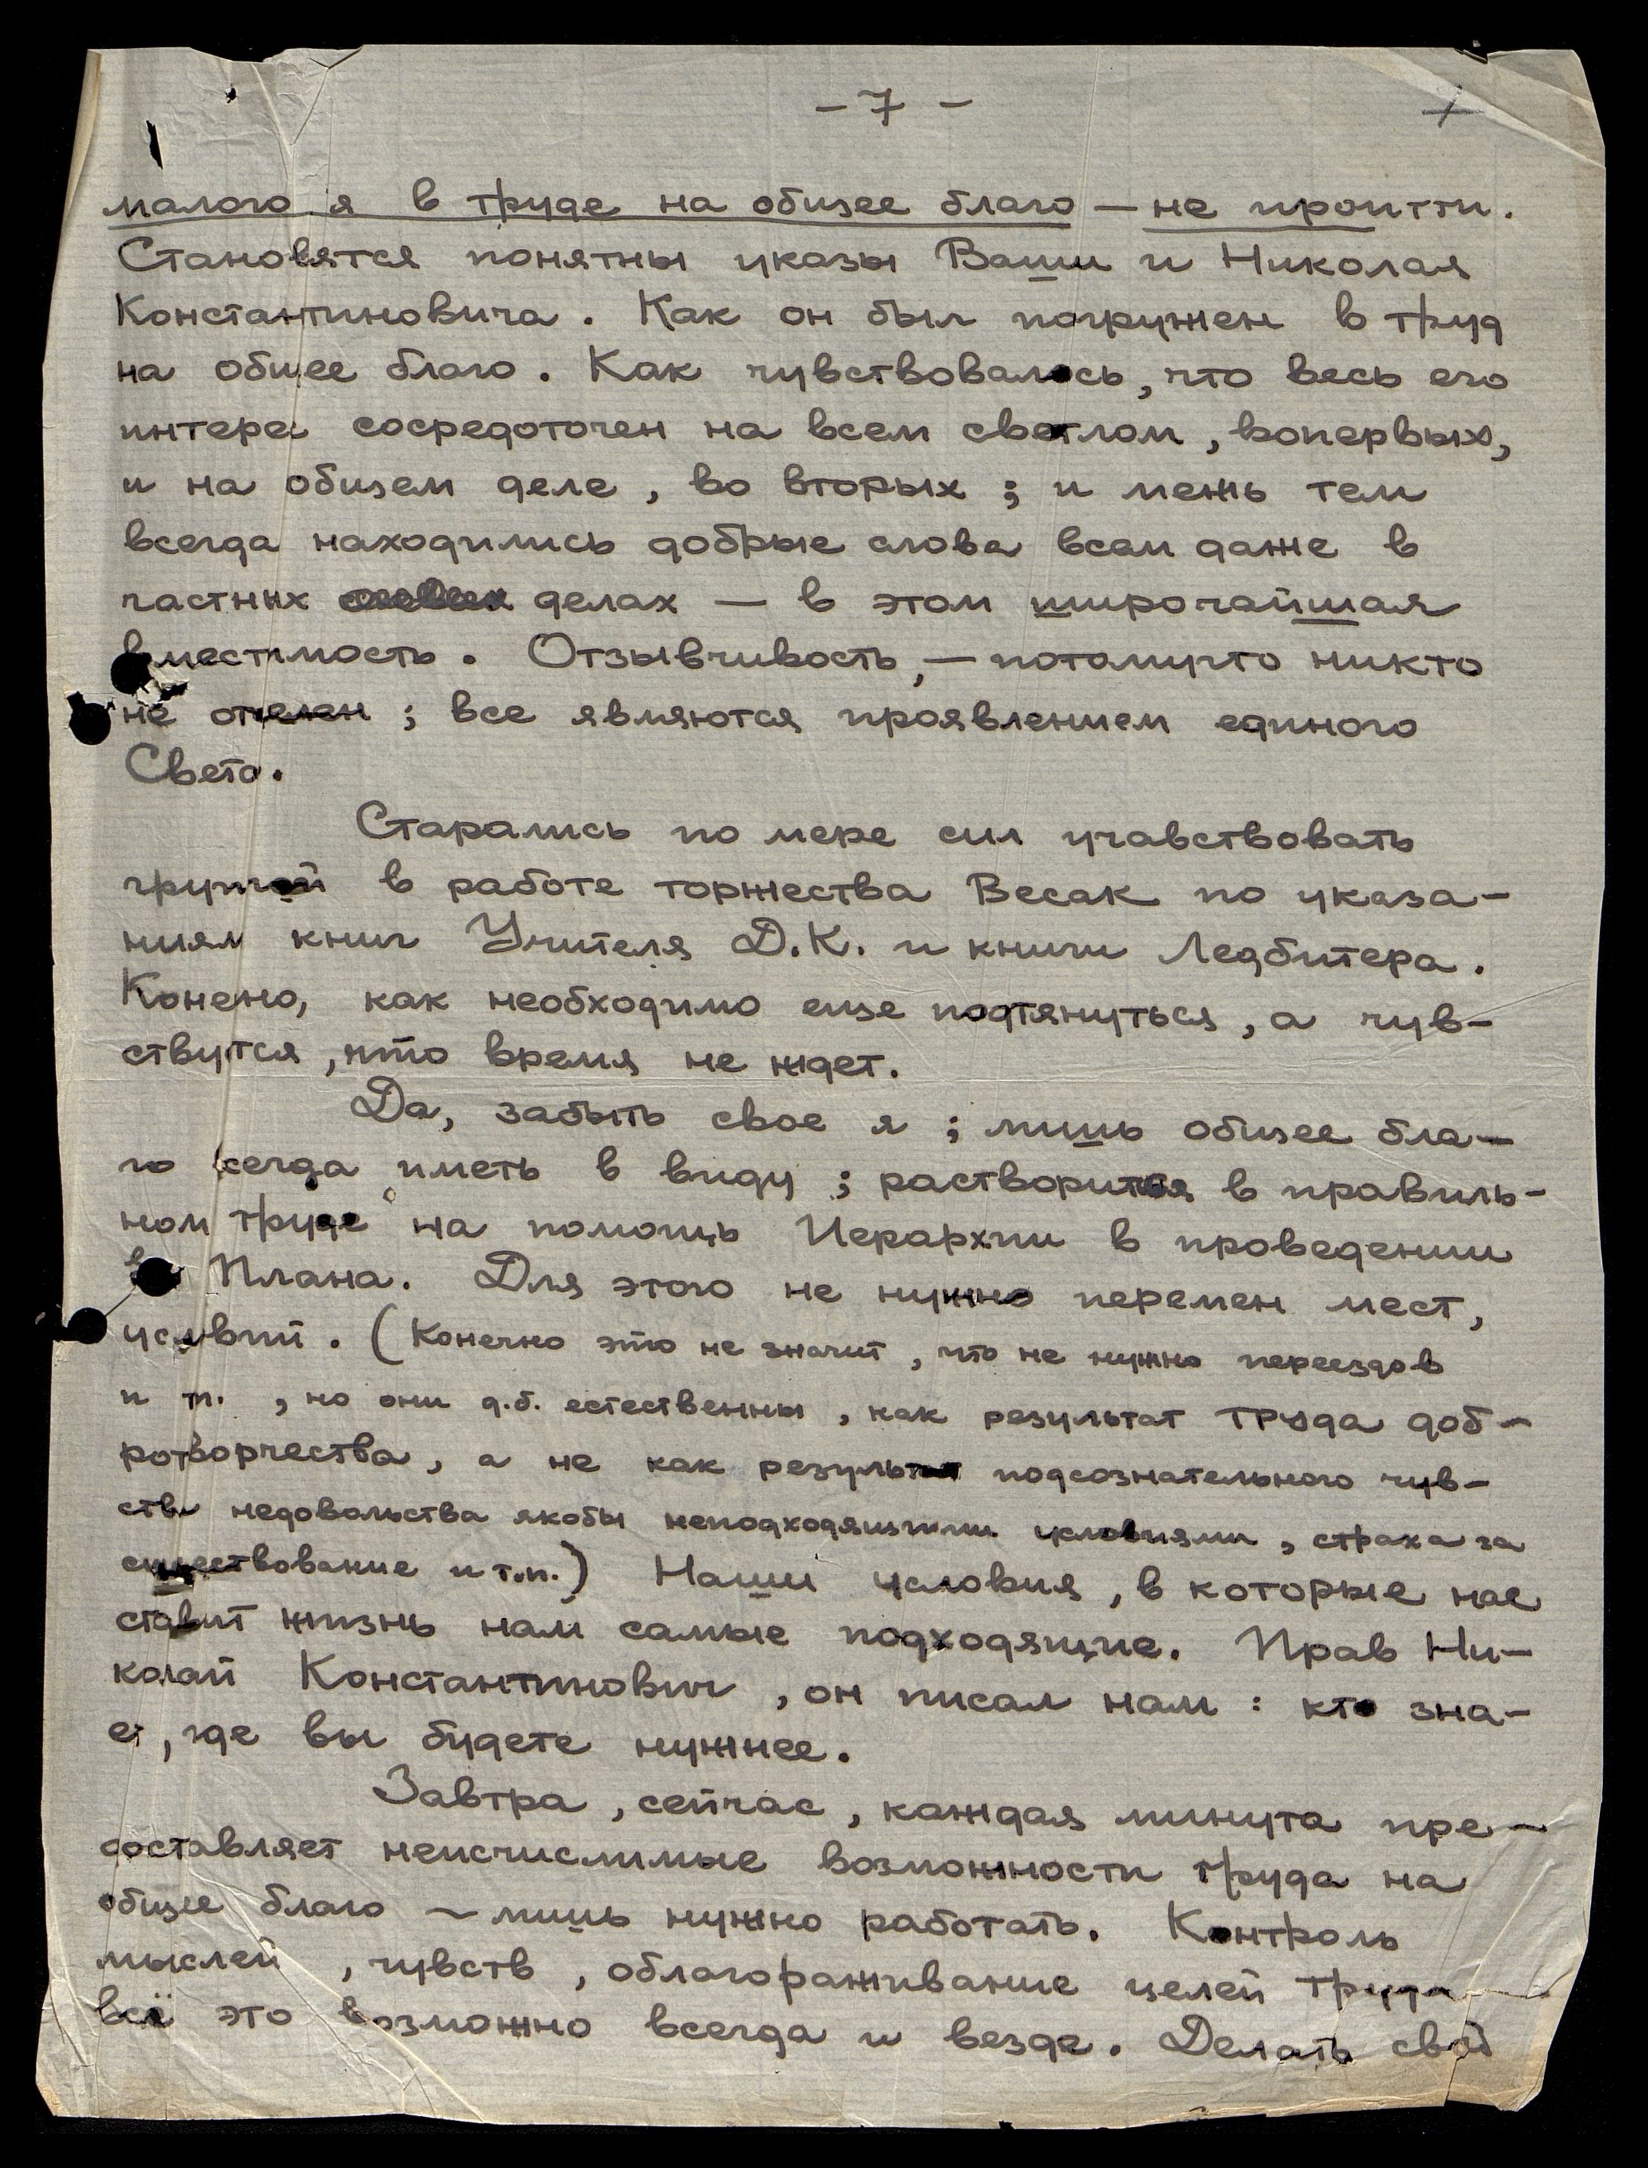 - 7 -
малого я в труде на общее благо — не пройти.
Становятся понятны указы Ваши и Николая
Константиновича. Как он был погружен в труд
на общее благо. Как чувствовалось, что весь его
интерес сосредоточен на всем светлом, вопервых,
и на общем деле, во вторых; и межь тем
всегда находились добрые слова всем даже в
частных делах — в этом широчайшая
вместимость. Отзывчивость, — потомучто никто
не отделен; все являются проявлением единого
Света.
Старались по мере сил учавствовать
группой в работе торжества Весак по указа-
ниям книг Учителя Д.К. и книги Ледбитера.
Конечно, как необходимо еще подтянуться, а чув-
ствуется, что время не ждет.
Да, забыть свое я; лишь общее бла-
го всегда иметь в виду; раствориться в правиль-
ном труде на помощь Иерархии в проведении
Плана. Для этого не нужно перемен мест,
условий. (Конечно это не значит, что не нужно переездов
и т.п., но они д.б. естественны, как результат труда доб-
ротворчества, а не как результат подсознательного чув-
ства недовольства якобы неподходящими условиями, страха за
существование и т.п.) Наши условия, в которые нас
ставит жизнь нам самые подходящие. Прав Ни-
колай Константинович, он писал нам: кто зна-
ет, где вы будете нужнее.
Завтра, сейчас, каждая минута пре-
доставляет неисчислимые возможности труда на
общее благо — лишь нужно работать. Контроль
мыслей, чувств, облагораживание целей труда —
всё это возможно всегда и везде. Делать своё